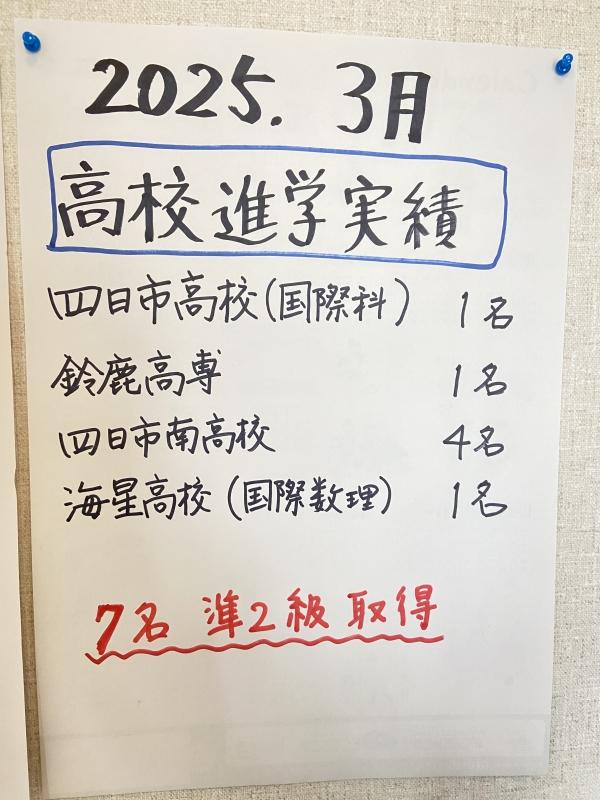 2025. 3月
高校進学実績
四日市高校(国際科) 1名
鈴鹿高専 1名
四日市南高校 4名
海星高校(国際数理) 1名
7名 準2級 取得